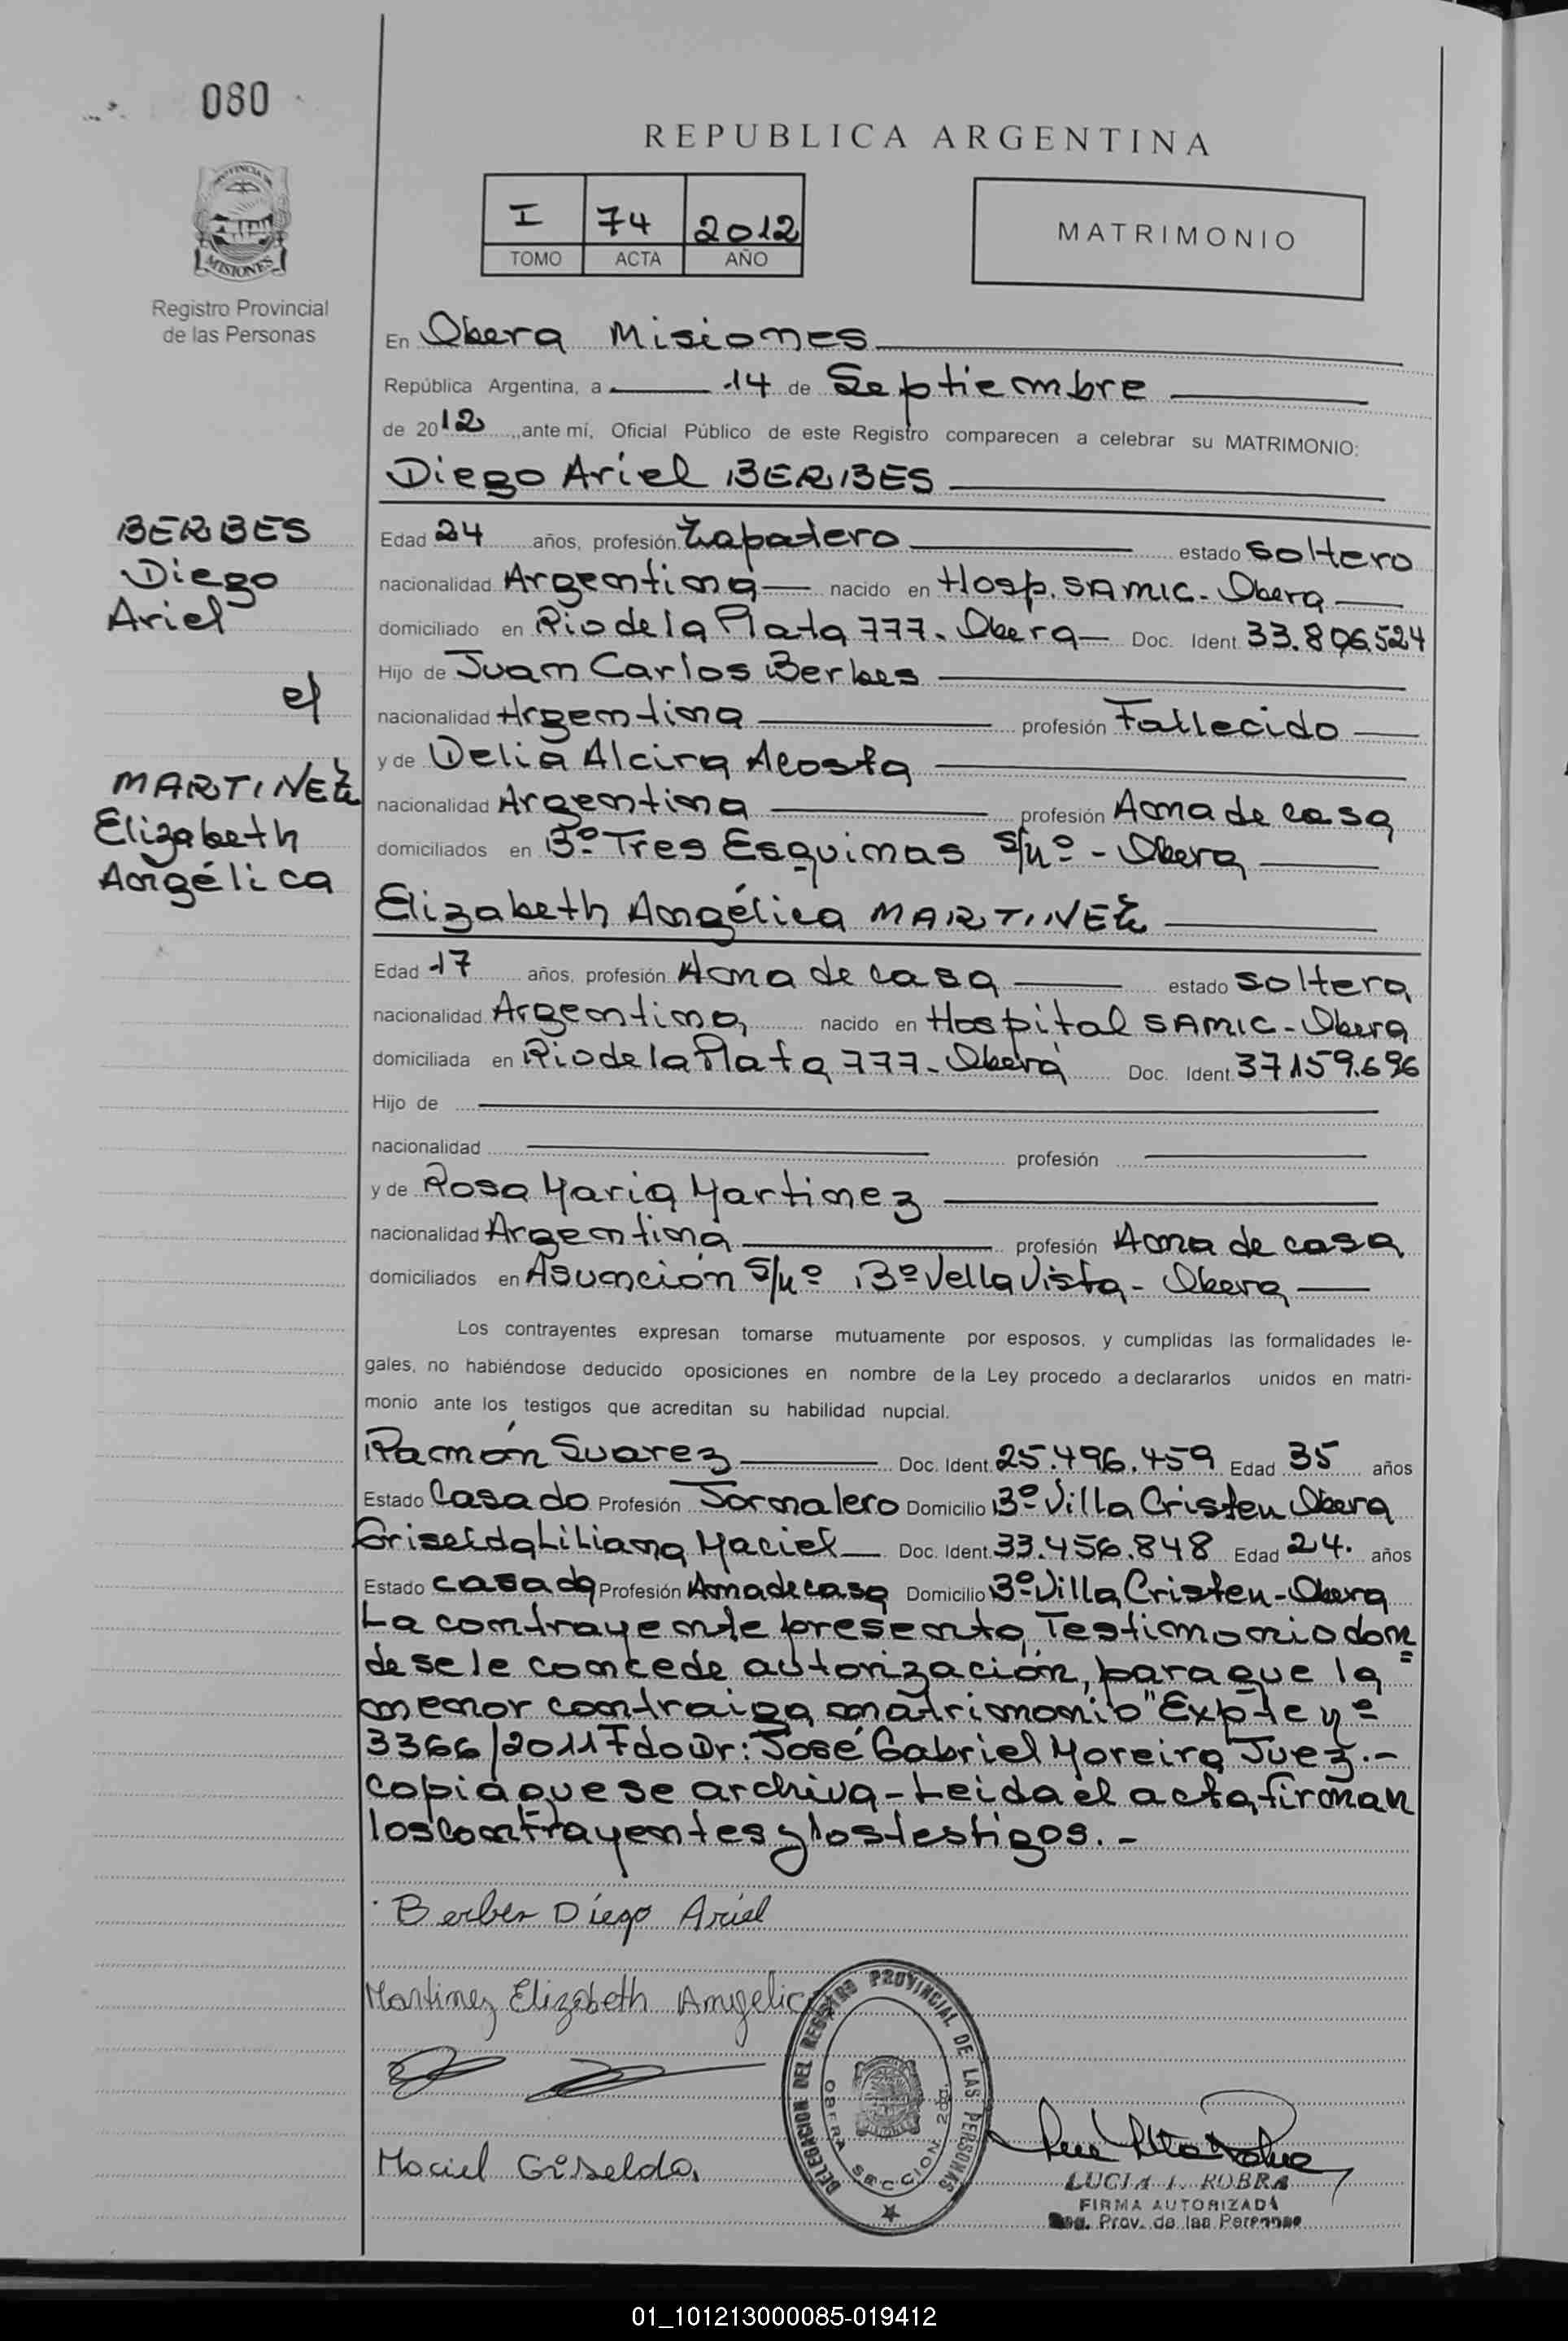 080
REPUBLICA ARGENTINA
I 74 2012
TOMO ACTA AÑO
MATRIMONIO
PROVINCIA DE
MISIONES
Registro Provincial
de las Personas
BERBES
Diego
Ariel
MARTINEZ
Elizabeth
Angélica
En Obera Misiones
República Argentina, a 14 de Septiembre
de 2012 ,ante mí, Oficial Público de este Registro comparecen a celebrar su MATRIMONIO:
Diego Ariel BERBES
Edad 24 años, profesión Zapatero estado soltero
nacionalidad Argentina nacido en Hosp. SAMIC - Obera
domiciliado en Rio de la Plata 777 - Obera Doc. Ident. 33.806.524
Hijo de Juan Carlos Berbes
nacionalidad Argentina profesión Fallecido
y de Delia Alcira Acosta
nacionalidad Argentina profesión Ama de casa
domiciliados en Bº Tres Esquinas S/Nº - Obera
Elizabeth Angélica MARTINEZ
Edad 17 años, profesión Ama de casa estado soltera
nacionalidad Argentina nacido en Hospital SAMIC - Obera
domiciliada en Rio de la Plata 777 - Oberá Doc. Ident. 37159.696
Hijo de
nacionalidad profesión
y de Rosa Maria Martinez
nacionalidad Argentina profesión Ama de casa
domiciliados en Asunción S/Nº Bº Vella Vista - Obera
Los contrayentes expresan tomarse mutuamente por esposos, y cumplidas las formalidades le-
gales, no habiéndose deducido oposiciones en nombre de la Ley procedo a declararlos unidos en matri-
monio ante los testigos que acreditan su habilidad nupcial.
Ramón Suarez Doc. Ident. 25.496.459 Edad 35 años
Estado Casado Profesión Jornalero Domicilio Bº Villa Cristen Obera
Griselda Liliana Maciel Doc. Ident. 33.456.848 Edad 24. años
Estado casada Profesión Ama de casa Domicilio Bº Villa Cristen - Obera
La contrayente presento Testimonio don=
de se le concede autorización, para que la "
menor contraiga matrimonio" Expte Nº
3366/2011 Fdo Dr: José Gabriel Moreira Juez.-
copia que se archiva - Leida el acta firman
los contrayentes y los testigos. -
Berbes Diego Ariel
Martinez Elizabeth Angelica
Maciel Griselda
DELEGACION DEL REGISTRO PROVINCIAL DE LAS PERSONAS
OBERA SECCION 2da.
LUCIA I. ROBRA
FIRMA AUTORIZADA
Reg. Prov. de las Personas
01_101213000085-019412